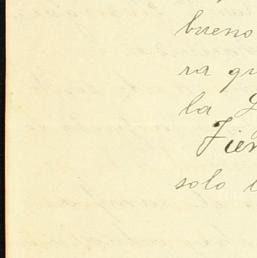 bueno
ra qu
la
Tien
solo